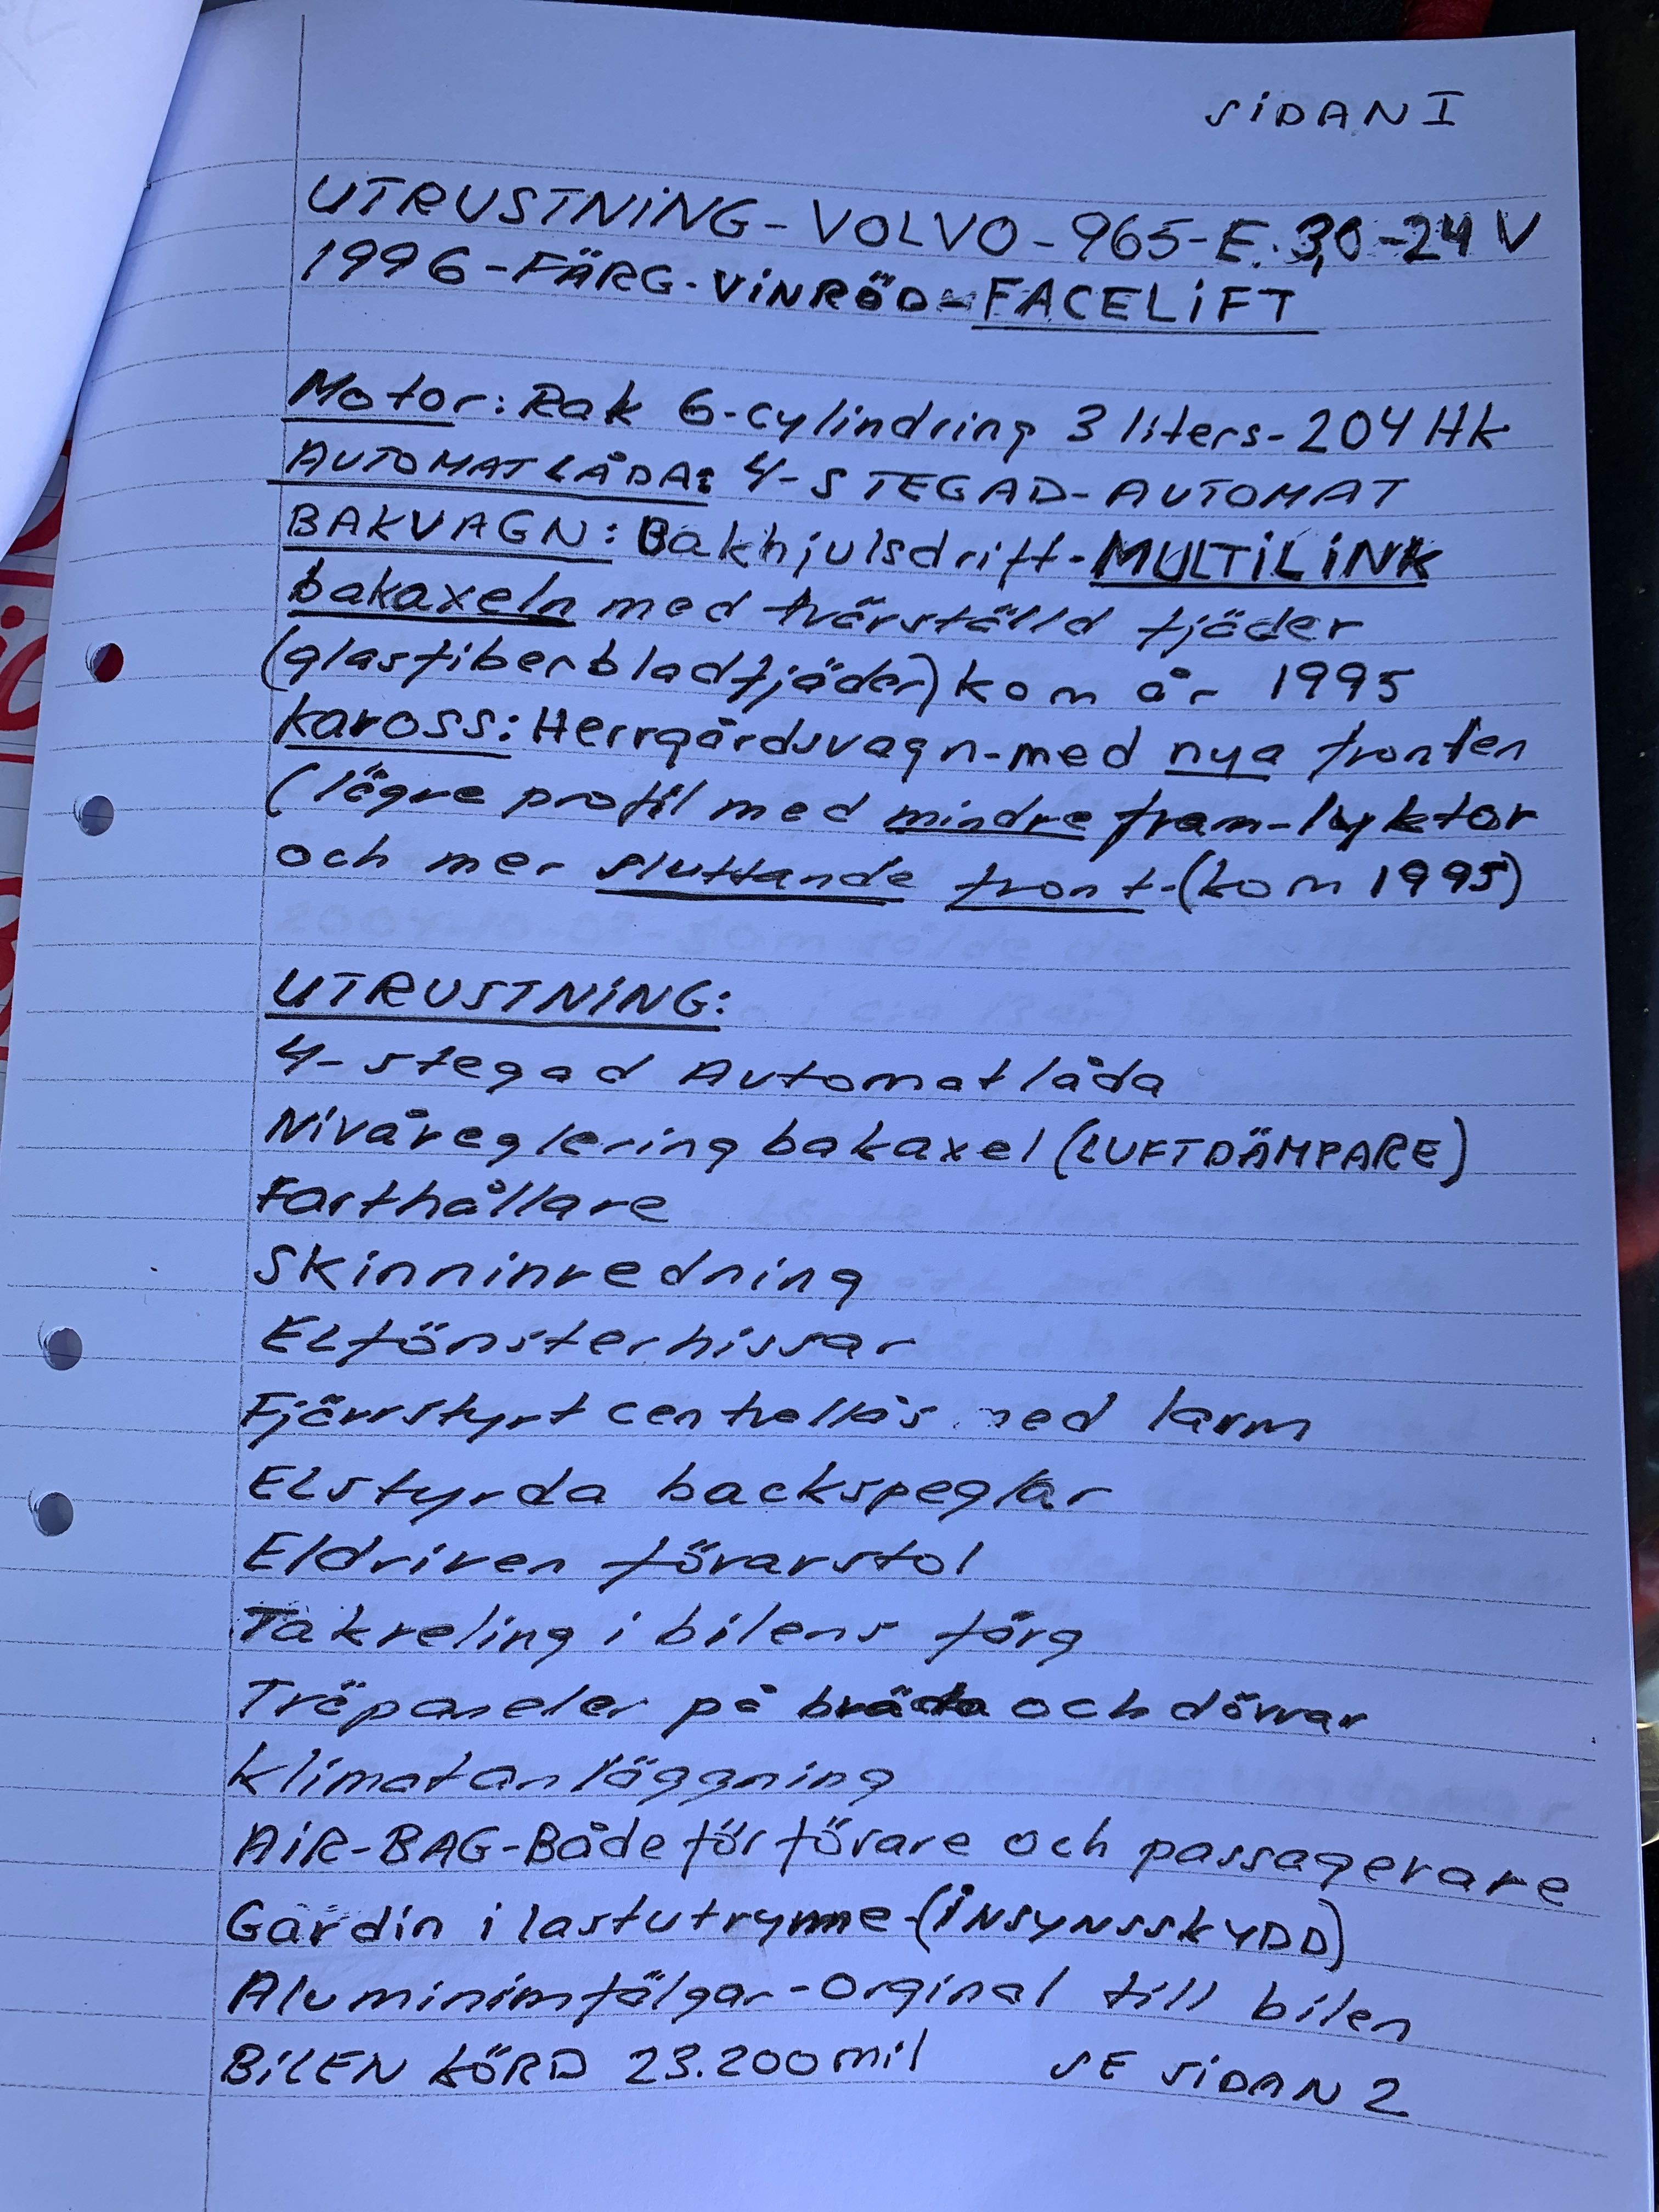 SIDAN I
UTRUSTNING-VOLVO-965-E.3,0-24V
1996-FÄRG-VINRÖD-FACELIFT
Motor: Rak 6-cylindring 3 liters-204 Hk
AUTOMATLÅDA: 4-STEGAD-AUTOMAT
BAKVAGN: Bakhjulsdrift-MULTILINK
bakaxeln med tvärställd fjäder
(glasfiberbladfjäder) kom år 1995
kaross: Herrgårdsvagn-med nya fronten
(lägre profil med mindre fram-lyktor
och mer sluttande front-(kom 1995)
UTRUSTNING:
4-stegad Automatlåda
Nivåreglering bakaxel (LUFTDÄMPARE)
Farthållare
Skinninredning
Elfönsterhissar
Fjärrstyrt centrallås med larm
Elstyrda backspeglar
Eldriven förarstol
Takreling i bilens färg
Träpaneler på bräda och dörrar
klimatanläggning
AIR-BAG-Både för förare och passagerare
Gardin i lastutrymme-(INSYNSSKYDD)
Aluminimfälgar-Orginal till bilen
BILEN KÖRD 23.200 mil SE SIDAN 2